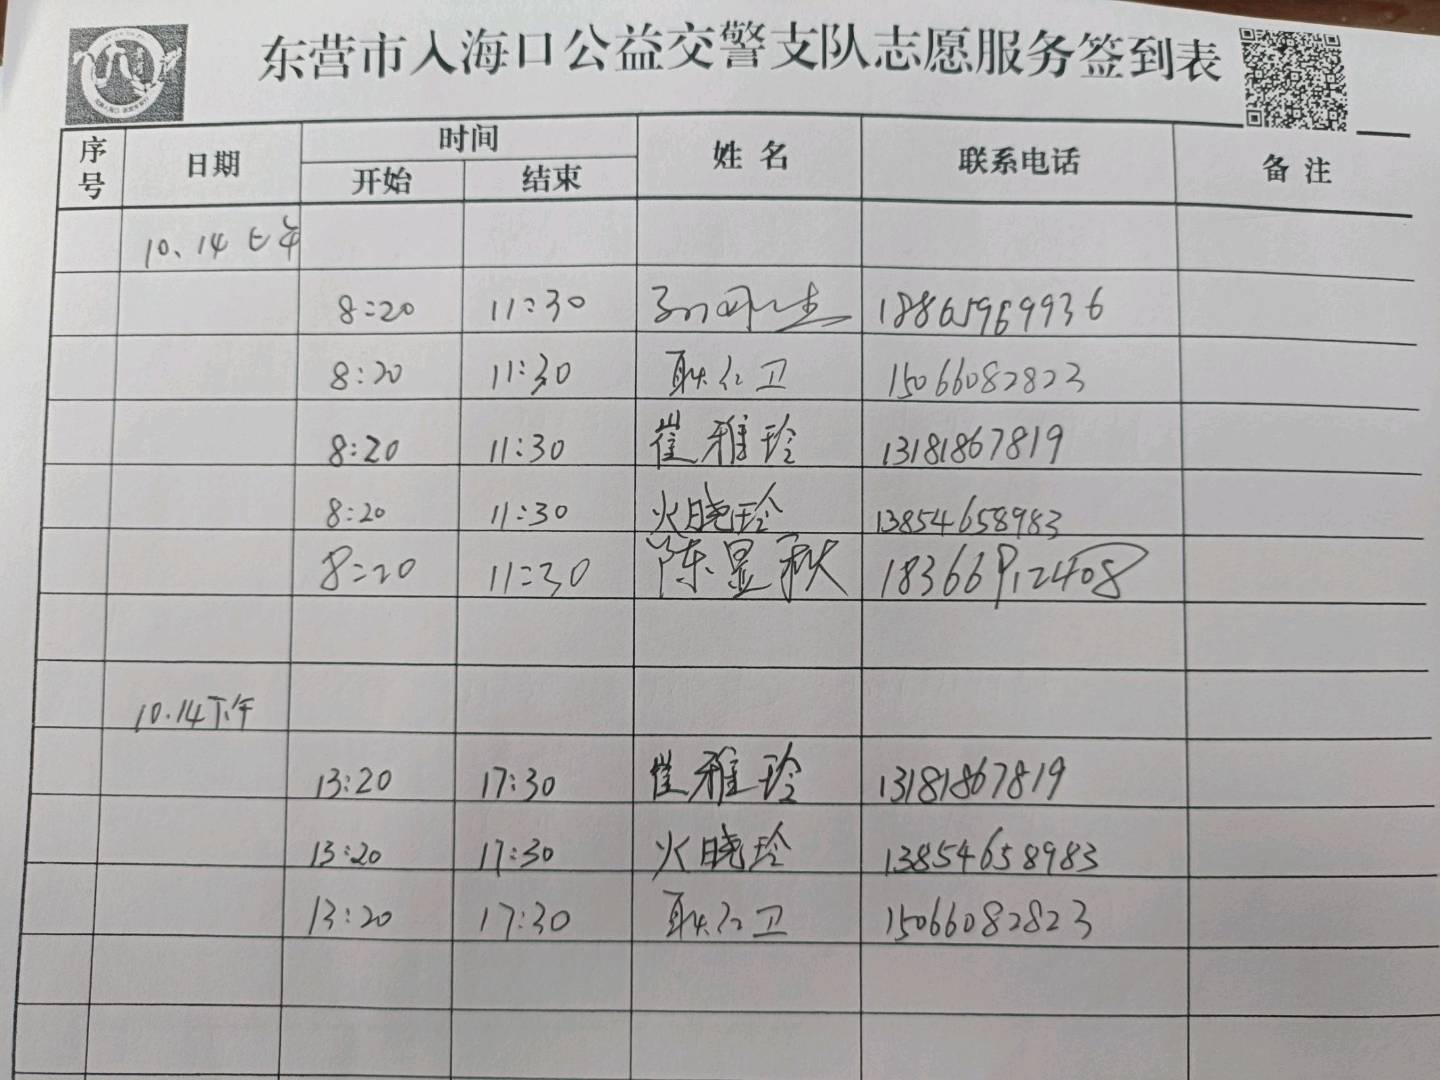 东营市入海口公益交警支队志愿服务签到表
序号 日期 时间 姓名 联系电话 备注
开始 结束
10.14 上午
8:20 11:30 18865969936
8:20 11:30 耿仁卫 15066082823
8:20 11:30 崔雅玲 13181867819
8:20 11:30 火晓玲 13854658983
8:20 11:30 陈显秋 18366912408
10.14 下午
13:20 17:30 崔雅玲 13181867819
13:20 17:30 火晓玲 13854658983
13:20 17:30 耿仁卫 15066082823